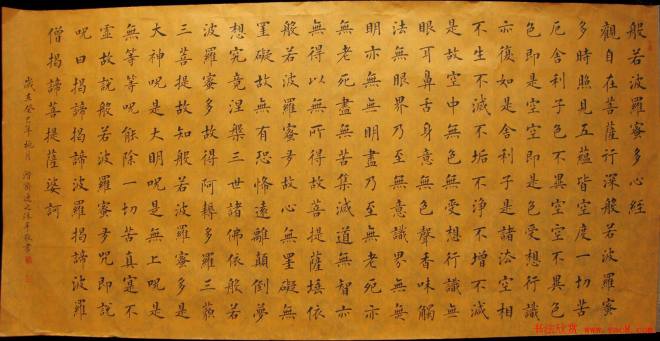 般若波羅蜜多心經
觀自在菩薩行深般若波羅蜜
多時照見五蘊皆空度一切苦
厄舍利子色不異空空不異色
色即是空空即是色受想行識
亦復如是舍利子是諸法空相
不生不滅不垢不淨不增不減
是故空中無色無受想行識無
眼耳鼻舌身意無色聲香味觸
法無眼界乃至無意識界無無
明亦無無明盡乃至無老死亦
無老死盡無苦集滅道無智亦
無得以無所得故菩提薩埵依
般若波羅蜜多故心無罣礙無
罣礙故無有恐怖遠離顛倒夢
想究竟涅槃三世諸佛依般若
波羅蜜多故得阿耨多羅三藐
三菩提故知般若波羅蜜多是
大神呪是大明呪是無上呪是
無等等呪能除一切苦真實不
虛故說般若波羅蜜多呪即說
呪曰揭諦揭諦波羅揭諦波羅
僧揭諦菩提薩婆訶
歲在癸巳年桃月
书法欣赏 www.yac8.com